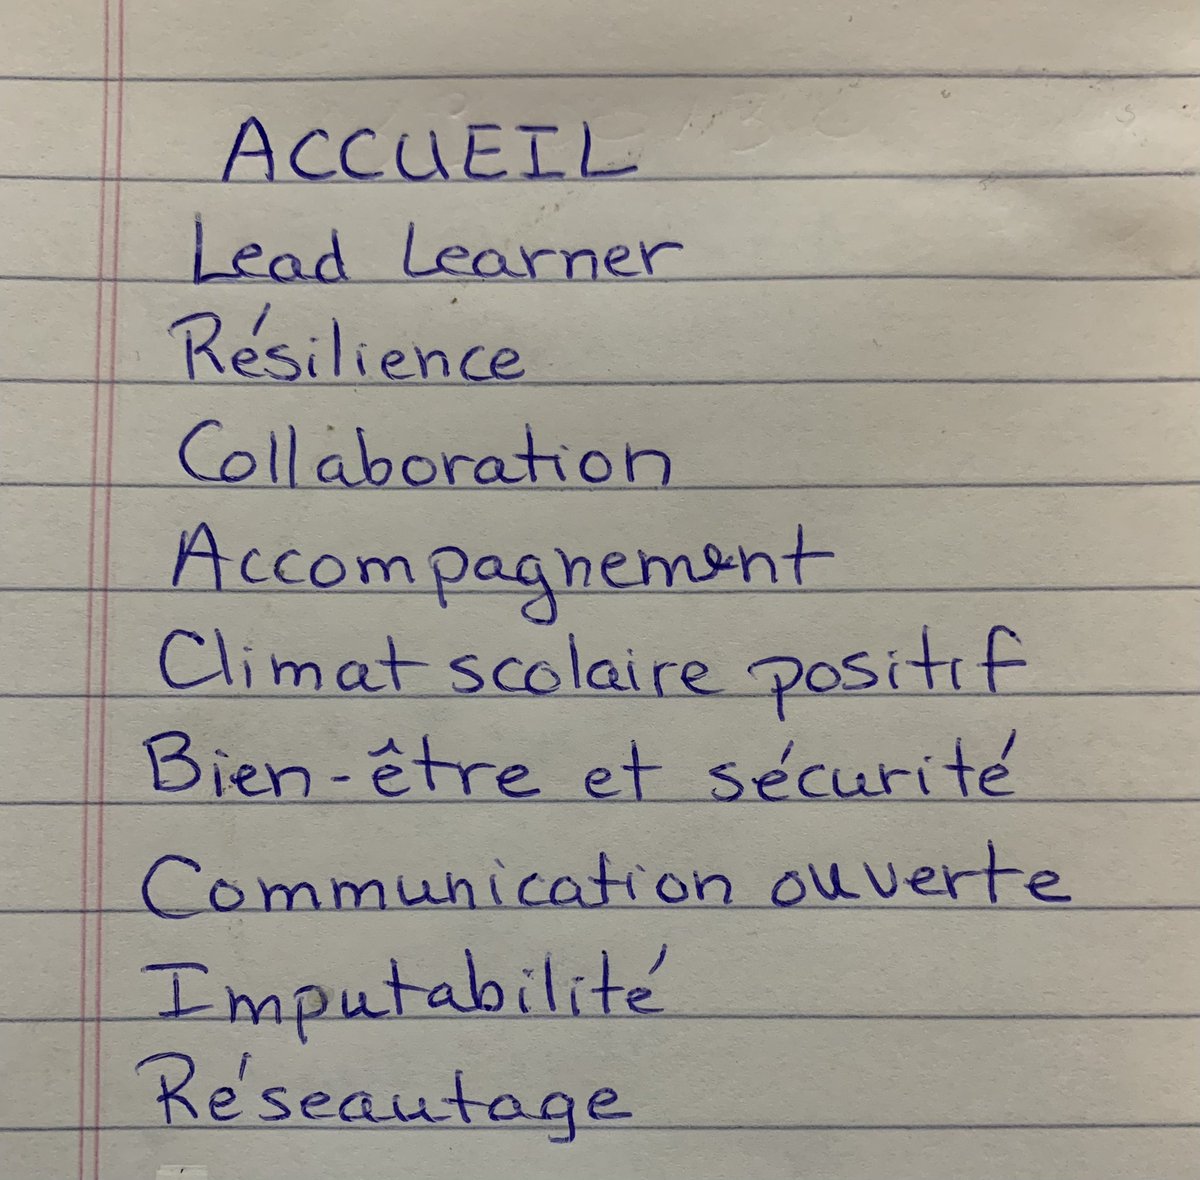 ACCUEIL
Lead Learner
Résilience
Collaboration
Accompagnement
Climat scolaire positif
Bien-être et sécurité
Communication ouverte
Imputabilité
Réseautage